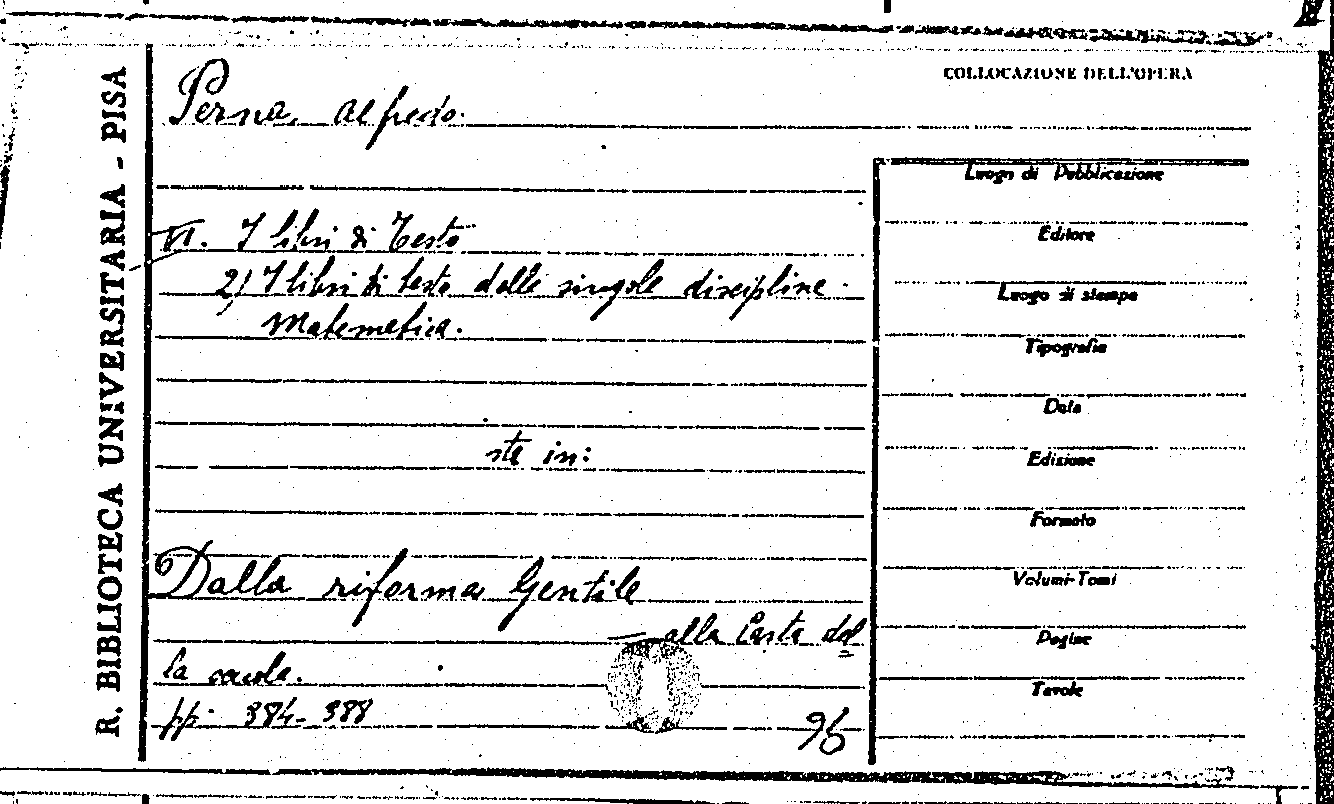 R. BIBLIOTECA UNIVERSITARIA - PISA
COLLOCAZIONE DELL'OPERA
Perna, Alfredo.
VI. I libri di Testo
2) I libri di testo delle singole discipline.
Matematica.
sta in:
Dalla riforma Gentile
alla Carta del
la scuola.
pp. 384-388
96
Luogo di Pubblicazione
Editore
Luogo di stampa
Tipografia
Data
Edizione
Formato
Volumi-Tomi
Pagine
Tavole